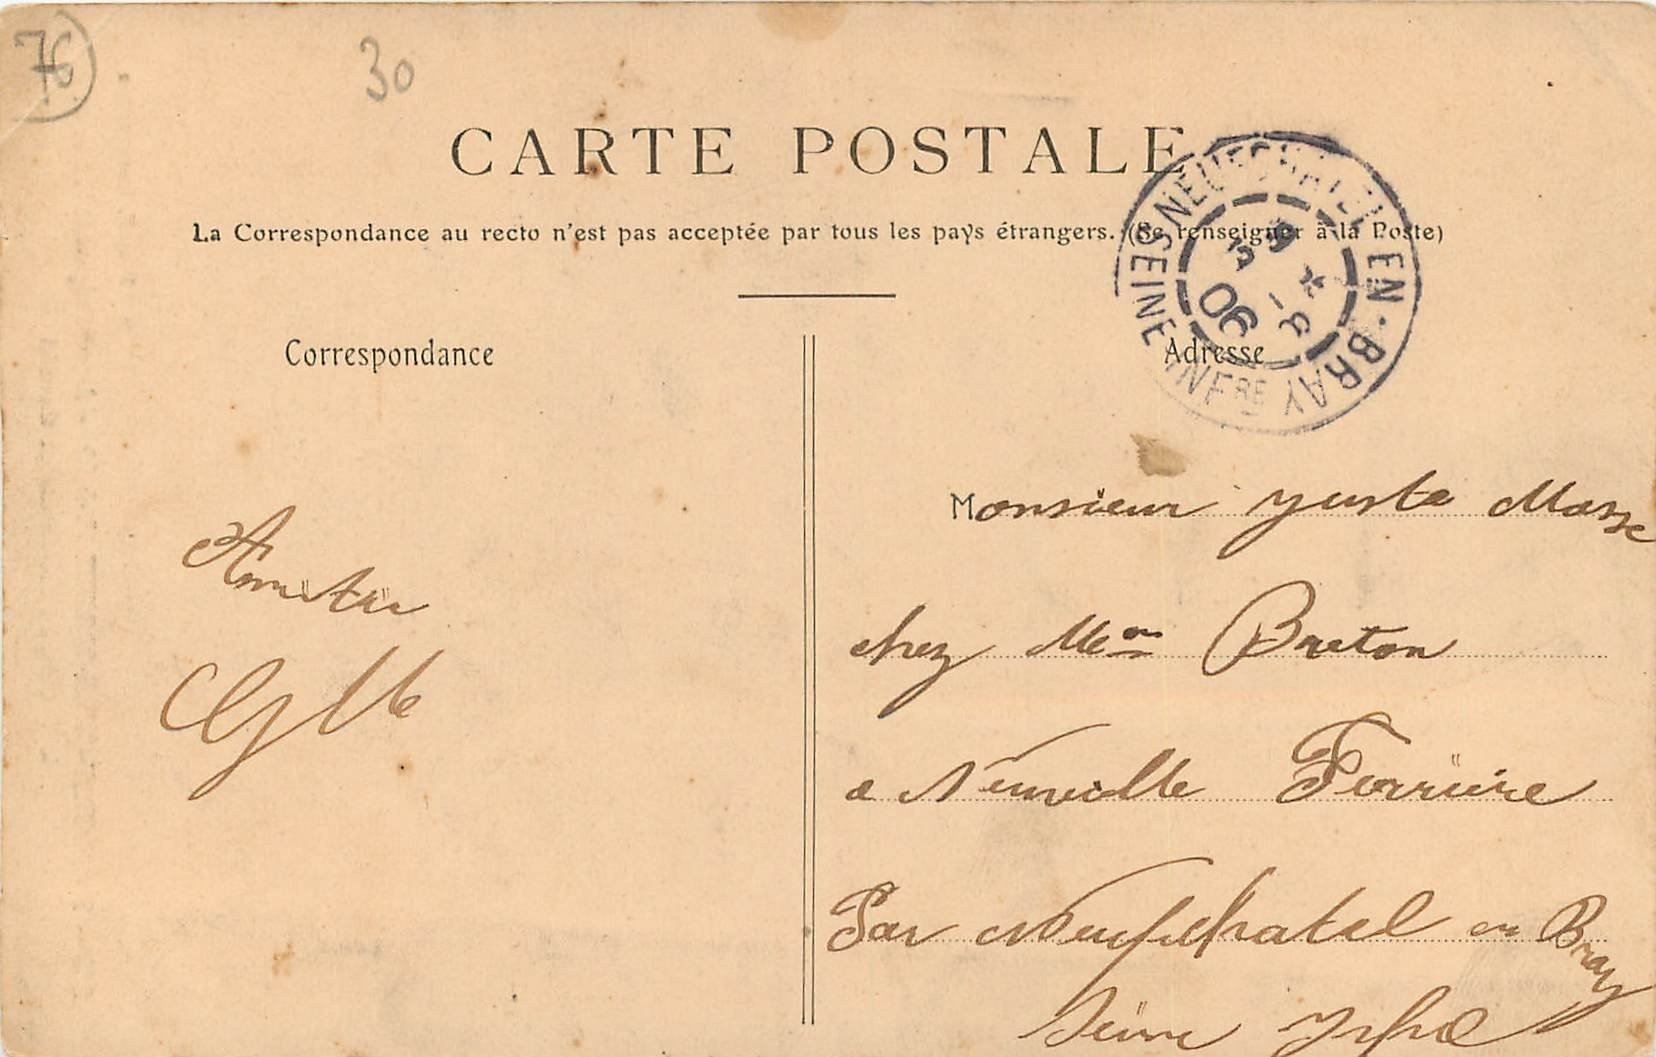 76
30
CARTE POSTALE
La Correspondance au recto n'est pas acceptée par tous les pays étrangers. (Se renseigner à la Poste)
NEUFCHATEL-EN-BRAY
SEINE-INFRE
06
Correspondance
Adresse
Amitié
Monsieur Juste Masse
chez Mme Breton
a Neuville Ferriere
Par Neufchatel en Bray
Seine